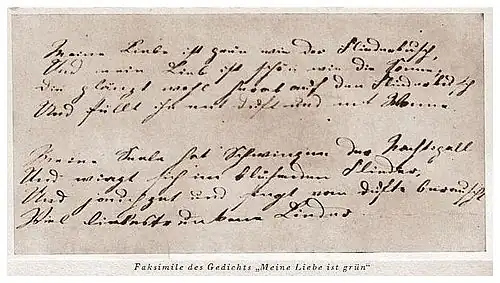 Meine Liebe ist grün wie der Fliederbusch,
Und mein Lieb ist schön wie die Sonne;
Die glänzt wohl herab auf den Fliederbusch
Und füllt ihn mit Duft und mit Wonne.
Meine Seele hat Schwingen der Nachtigall
Und wiegt sich im blühenden Flieder,
Und jauchzet und singt vom Duft berauscht
Viel liebestrunkene Lieder
Faksimile des Gedichts „Meine Liebe ist grün“